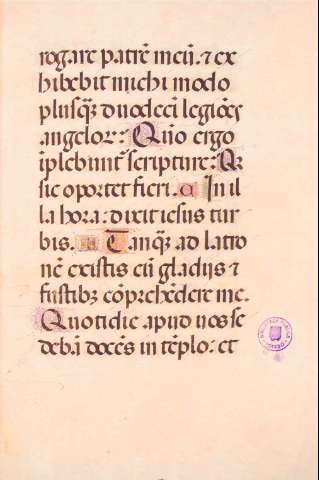 rogare patrē meū. ⁊ ex
hibebit michi modo
plusq̄ȝ duodecī legiōes
angelorꝫ Quō ergo
īplebunt᷑ scripture: Qꝛ
sic oportet fieri. a In il
la hora: dixit iesus tur
bis. a Tanqȝ ad latro
nē existis cū gladijs ⁊
fustibȝ cōprehēdere me.
Quotidie apud uos se
debā docēs in tēplo: et